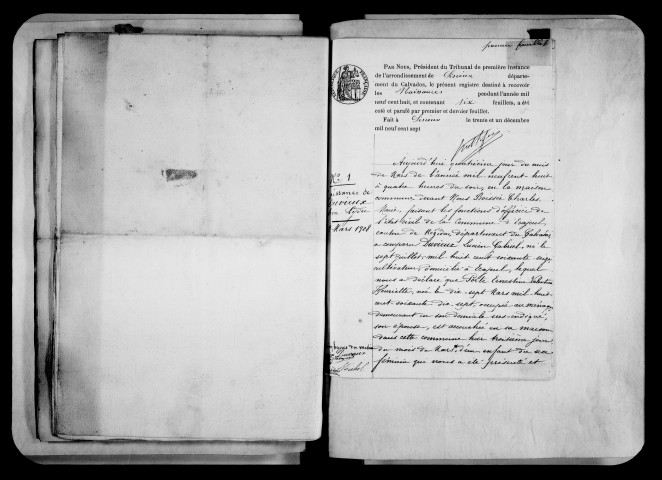 premier feuillet
PAR NOUS, Président du Tribunal de première instance
de l'arrondissement de Lisieux départe-
ment du Calvados, le présent registre destiné à recevoir
les Naissances pendant l'année mil
neuf cent huit, et contenant six feuillets, a été
coté et parafé par premier et dernier feuillet.
Fait à Lisieux le trente et un décembre
mil neuf cent sept
Aujourd'hui quatrième jour du mois
de Mars de l'année mil neuf cent huit
à quatre heures du soir, en la maison
commune devant Nous Charles
Marie, faisant les fonctions d'officier de
l'état civil de la Commune d'Ecajeul,
canton de Mézidon, département du Calvados
a comparu Duvieux Lucien Gabriel, né le
sept juillet mil huit cent soixante
cultivateur, domicilié à Ecajeul, lequel
nous a déclaré que Célestine
Henriette, née le dix-sept Mars mil huit
cent soixante dix sept, occupée au ménage
demeurant en son domicile sus-indiqué,
son épouse, est accouchée en sa maison
dans cette commune hier troisième jour
du mois de Mars d'un enfant du sexe
féminin que nous a été présenté et
No. 1
Naissance de
Duvieux
Mars 1908